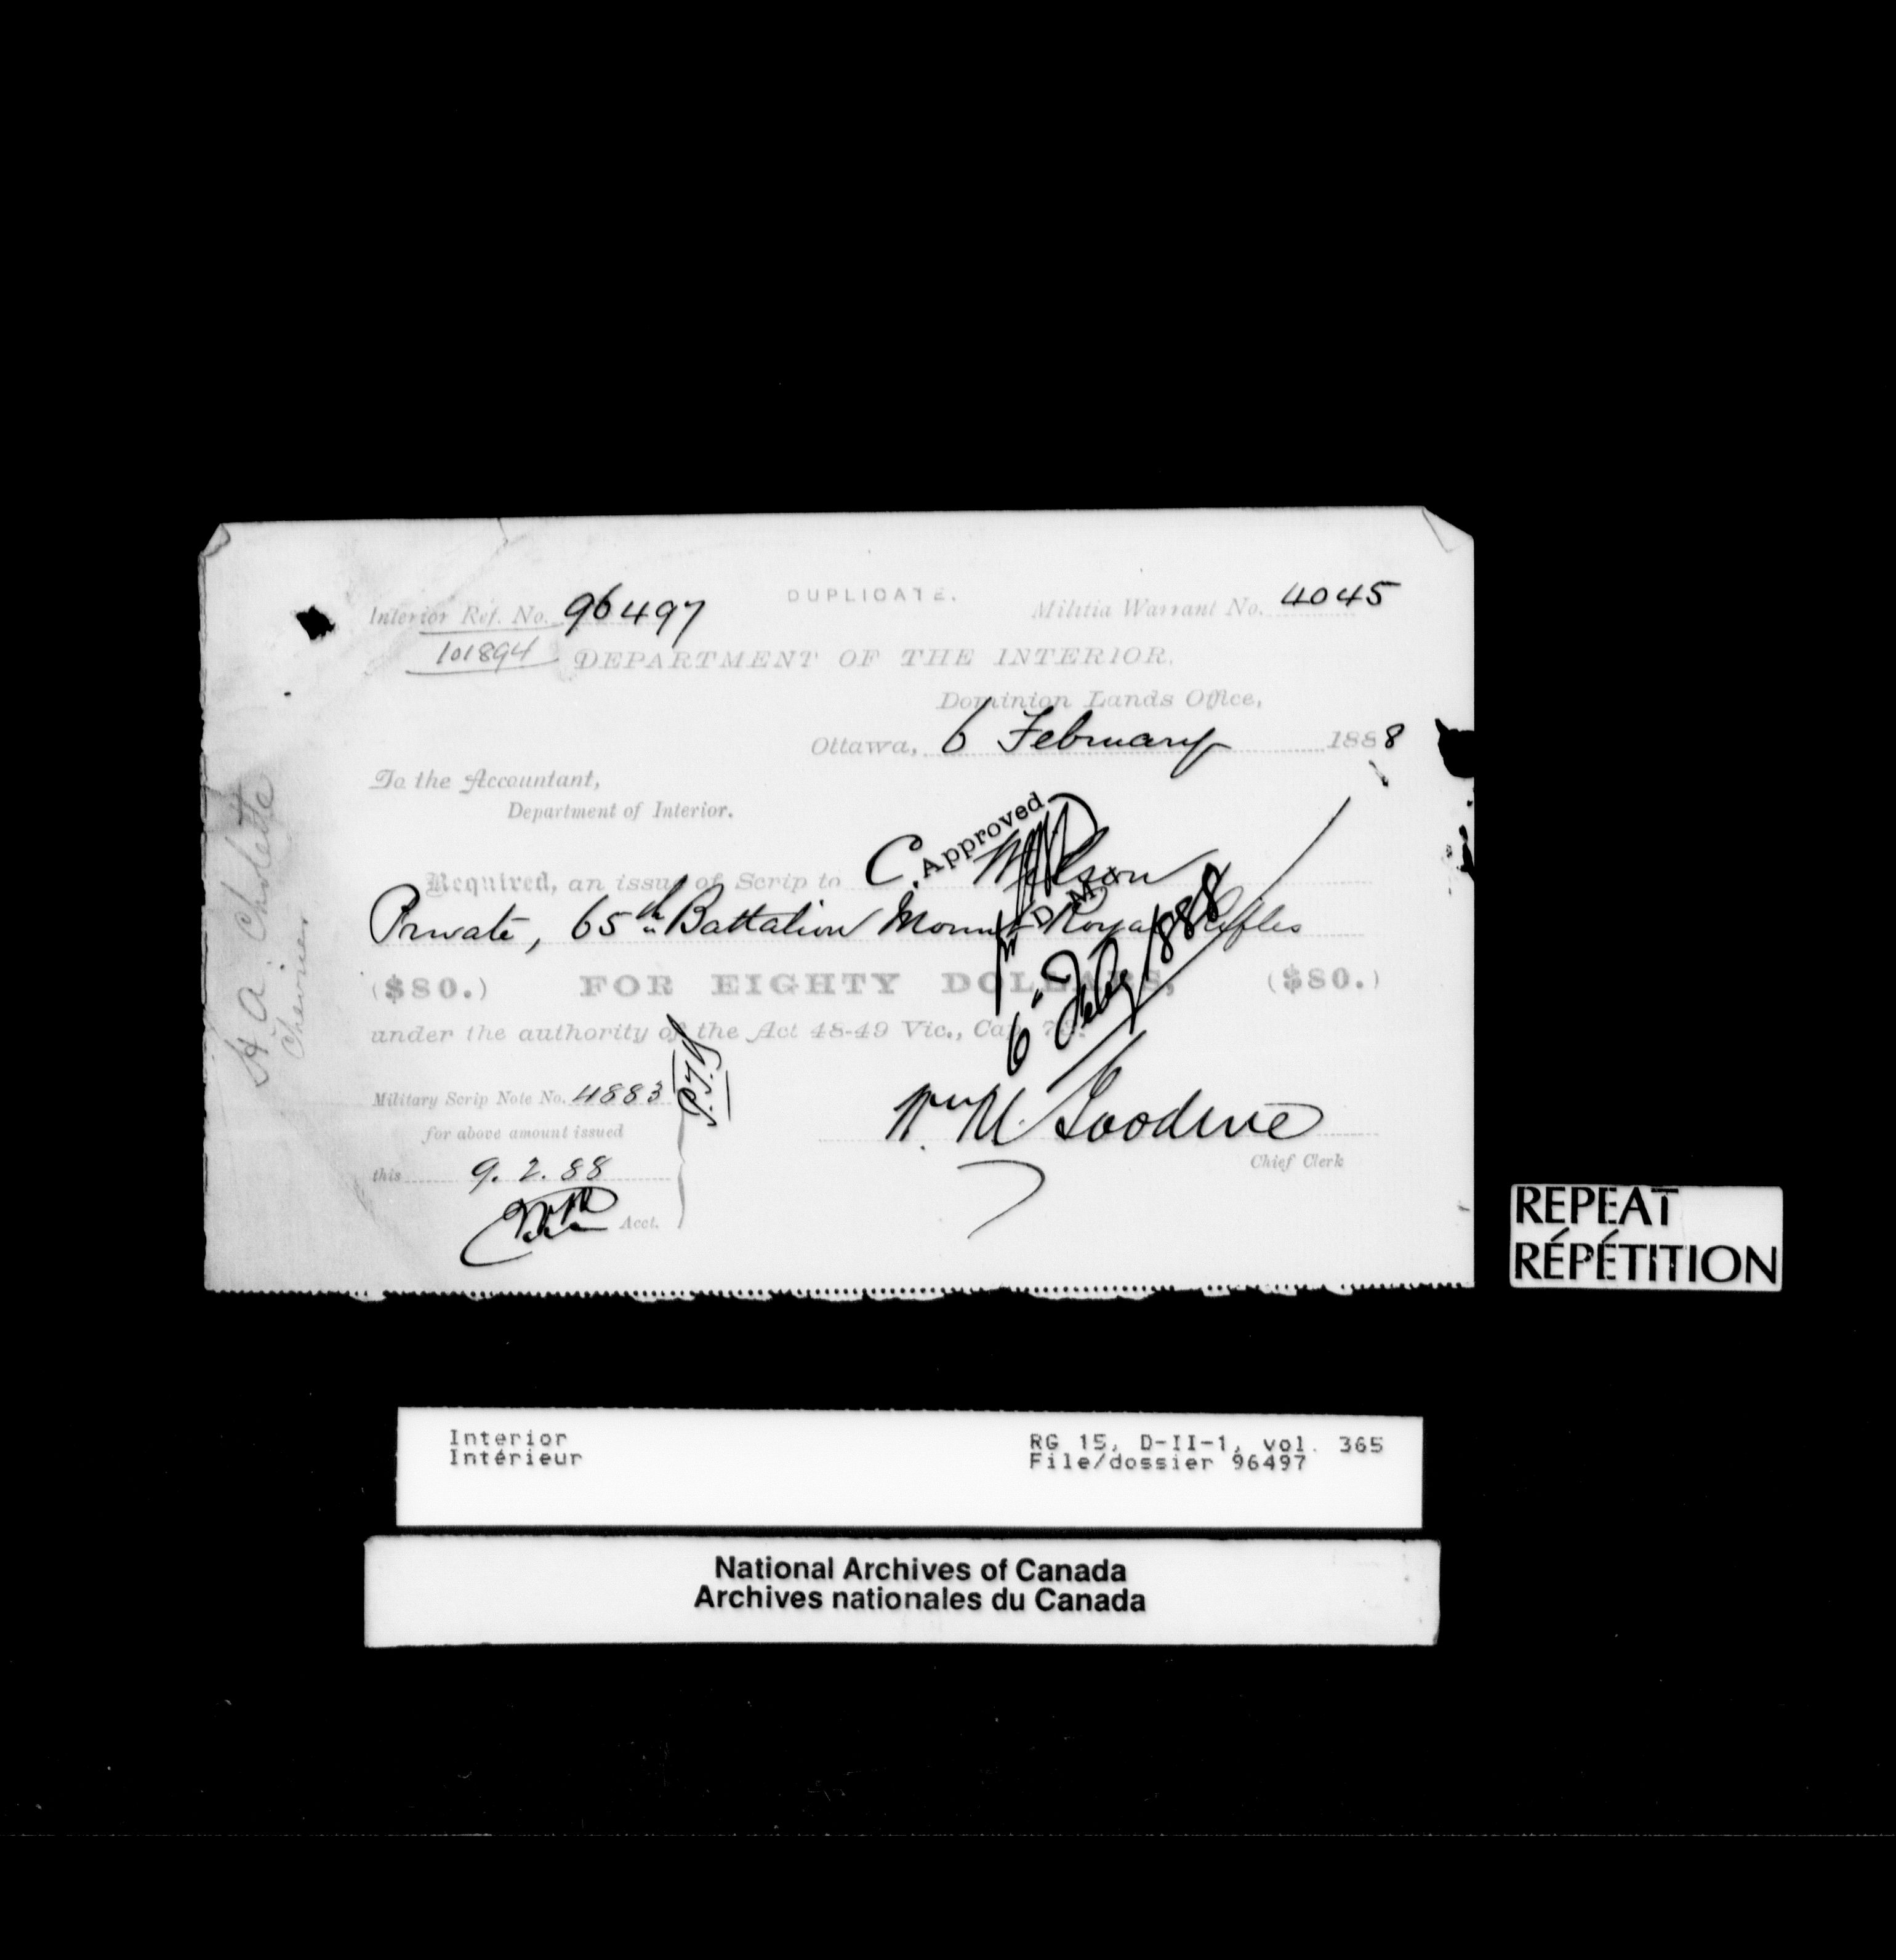 DUPLICATE.
Interior Ref. No. 96497
Militia Warrant No. 4045
101894
DEPARTMENT OF THE INTERIOR.
Dominion Lands Office,
Ottawa, 6 February 1888
To the Accountant,
Department of Interior.
Approved
Required, an issue of Scrip to C. Wilson
D. M.
Private, 65th Battalion Mount Royal Rifles
6" Feby 1888
($80.) FOR EIGHTY DOLLARS, ($80.)
under the authority of the Act 48-49 Vic., Cap. 73.
Military Scrip Note No. 4883
for above amount issued
this 9. 2. 88
Acct.
Wm M. Goodeve
Chief Clerk
H. A. Cholette
REPEAT
RÉPÉTITION
Interior
Intérieur
RG 15, D-II-1, vol. 365
File/dossier 96497
National Archives of Canada
Archives nationales du Canada